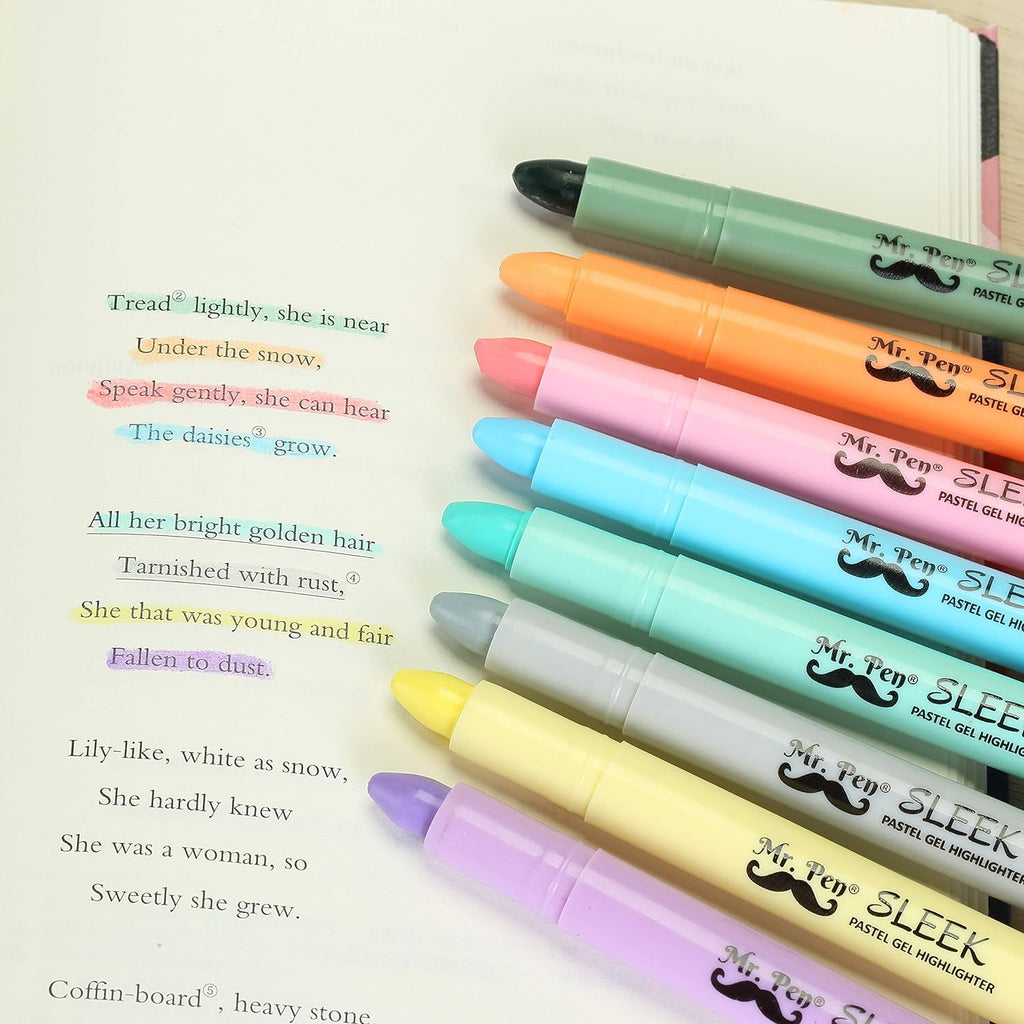 Tread② lightly, she is near
Under the snow,
Speak gently, she can hear
The daisies③ grow.
All her bright golden hair
Tarnished with rust,④
She that was young and fair
Fallen to dust.
Lily-like, white as snow,
She hardly knew
She was a woman, so
Sweetly she grew.
Coffin-board⑤, heavy stone
Mr. Pen® SL
PASTEL GE
Mr. Pen® SL
PASTEL GE
Mr. Pen® SLE
PASTEL GEL HIG
Mr. Pen® SLE
PASTEL GEL HIG
Mr. Pen® SLEE
PASTEL GEL HIGHLIG
Mr. Pen® SLEEK
PASTEL GEL HIGHLIGHTER
Mr. Pen® SLEEK
PASTEL GEL HIGHLIGHTER
Mr. Pen® SL